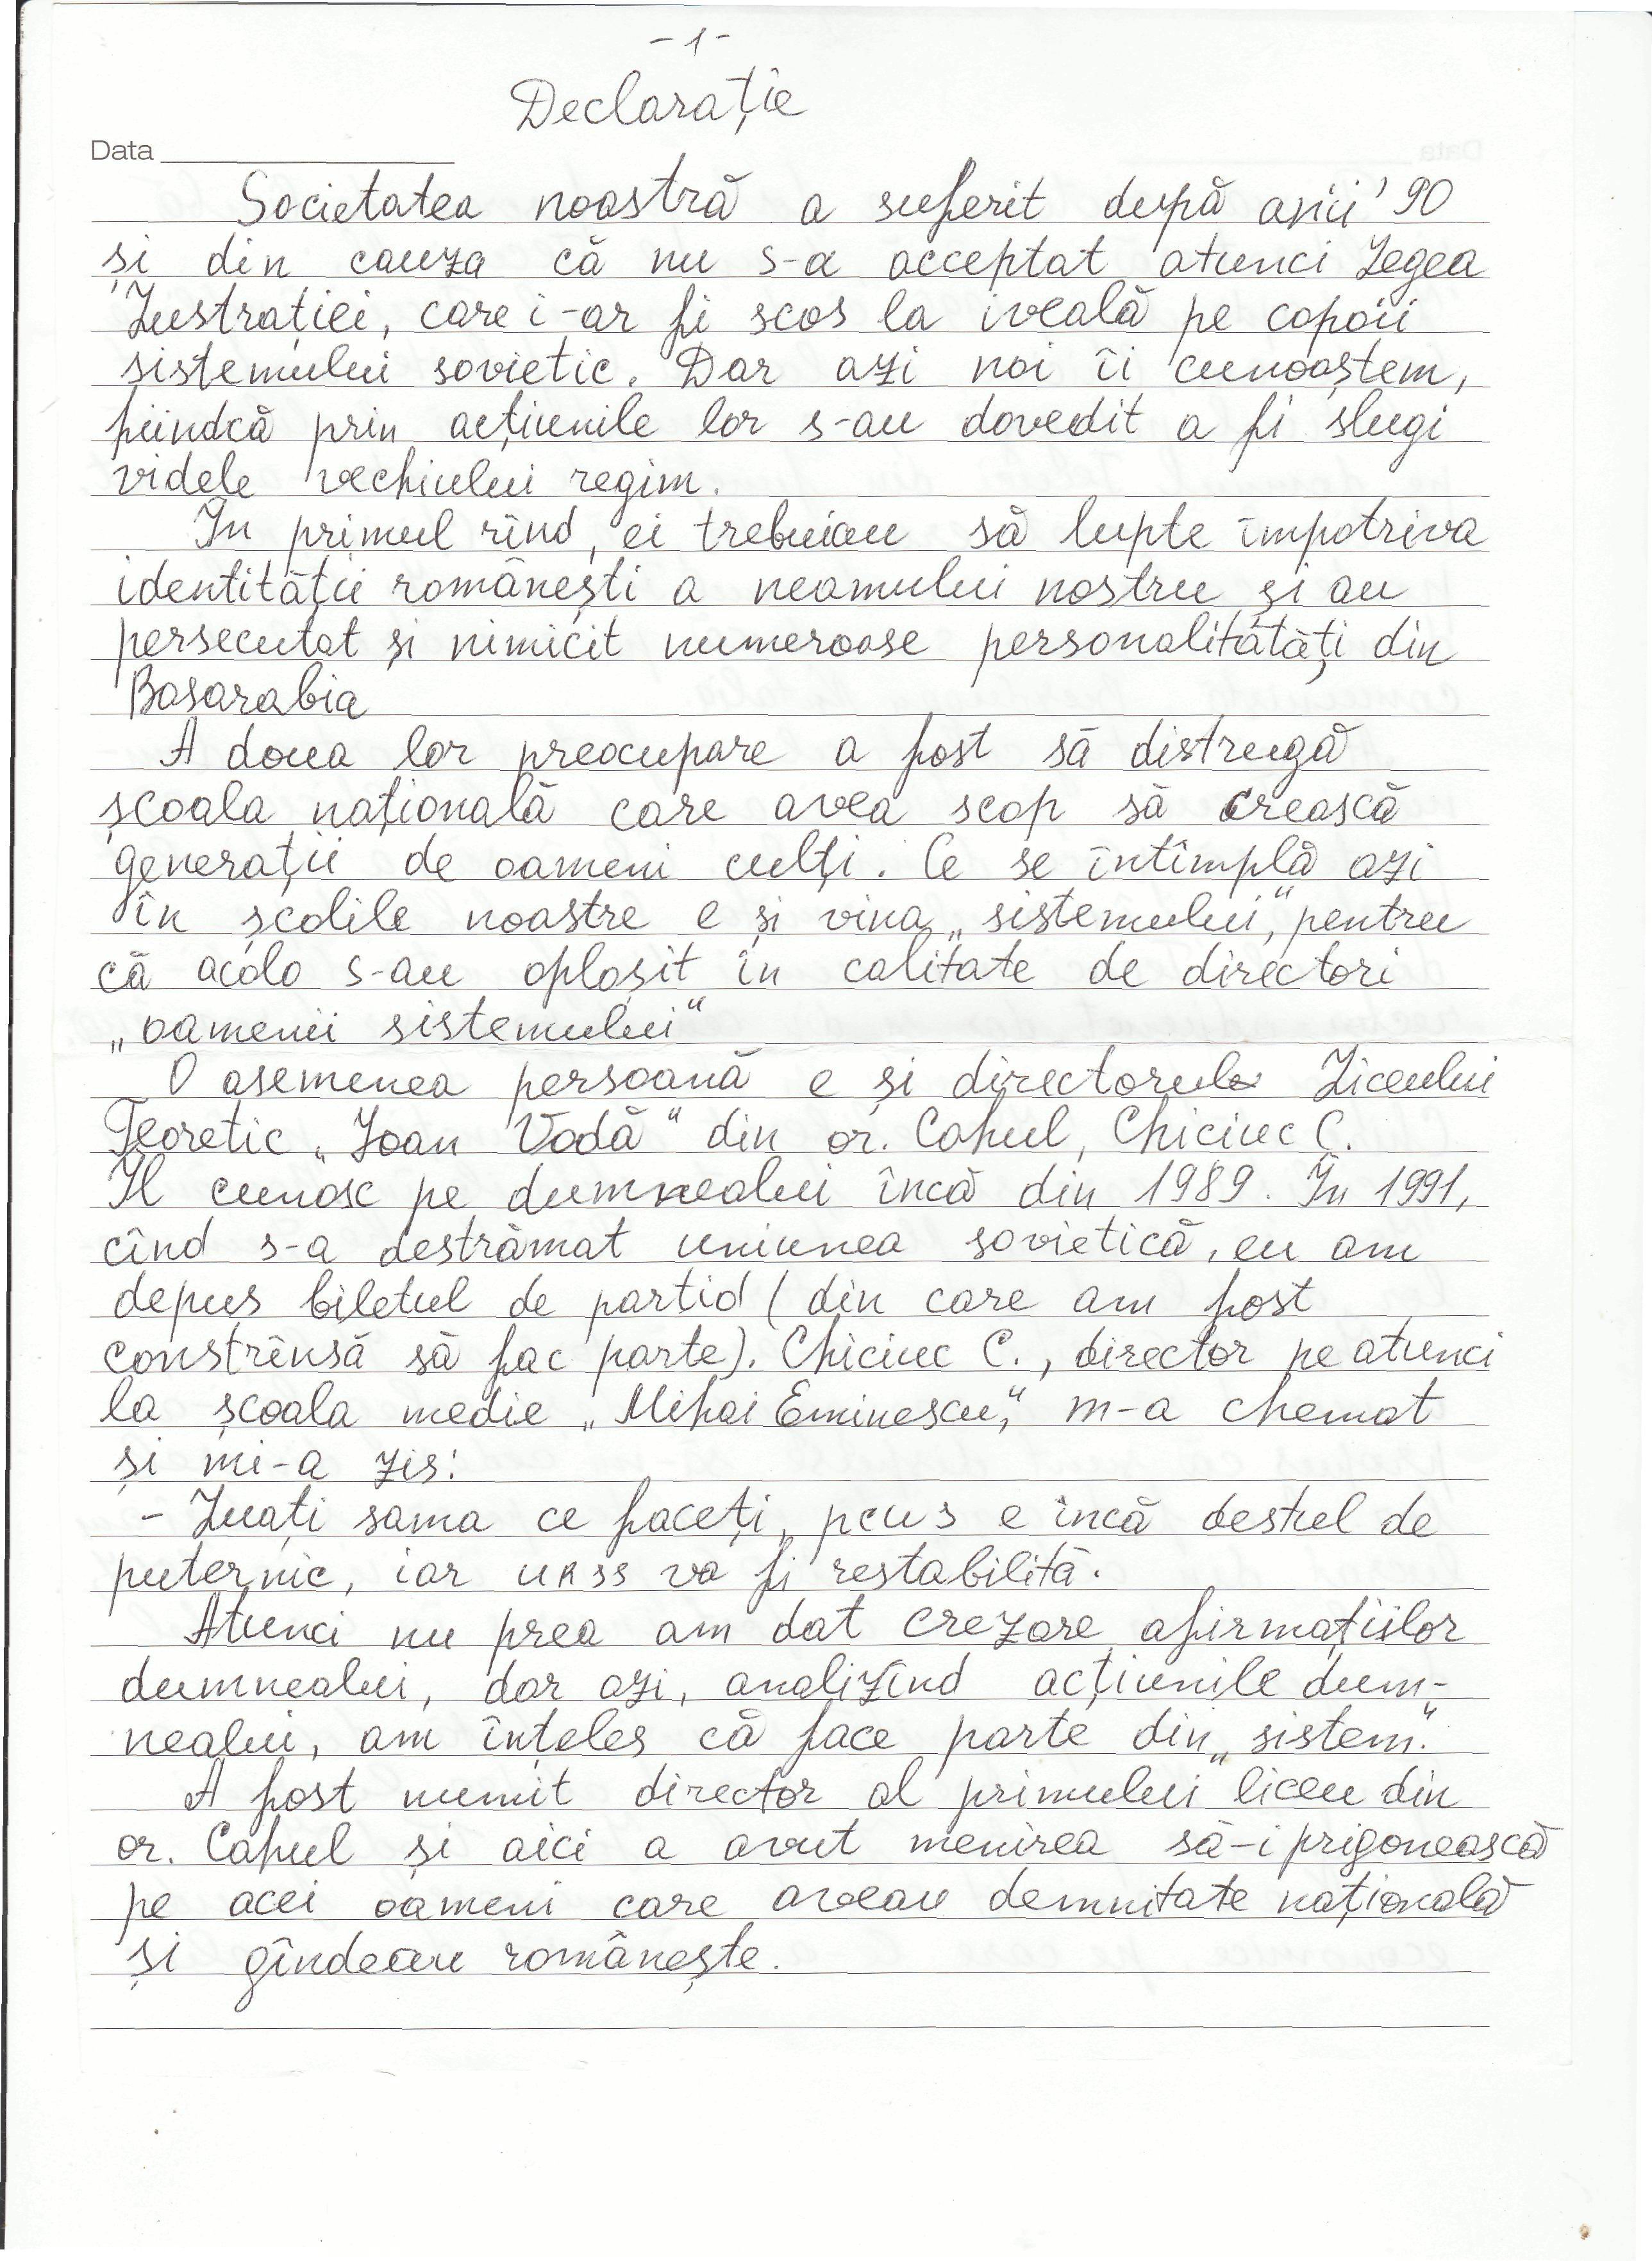 - 1 -
Declarație
Data
Societatea noastră a suferit după anii '90
și din cauza că nu s-a acceptat atunci Legea
Lustrației, care i-ar fi scos la iveală pe copoii
sistemului sovietic. Dar azi noi îi cunoaștem,
fiindcă prin acțiunile lor s-au dovedit a fi slugi
videle vechiului regim.
În primul rînd, ei trebuiau să lupte împotriva
identității românești a neamului nostru și au
persecutat și nimicit numeroase personalitătăți din
Basarabia
A doua lor preocupare a fost să distrugă
școala națională care avea scop să crească
generații de oameni culți. Ce se întîmplă azi
în școlile noastre e și vina „sistemului", pentru
că acolo s-au oploșit în calitate de directori
„oamenii sistemului"
O asemenea persoană e și directorul Liceului
Teoretic „Ioan Vodă" din or. Cahul, Chiciuc C.
Îl cunosc pe dumnealui încă din 1989. În 1991,
cînd s-a destrămat uniunea sovietică, eu am
depus biletul de partid (din care am fost
constrînsă să fac parte). Chiciuc C., director pe atunci
la școala medie „Mihai Eminescu", m-a chemat
și mi-a zis:
- Luați sama ce faceți, pcus e încă destul de
puternic, iar urss va fi restabilită.
Atunci nu prea am dat crezare afirmațiilor
dumnealui, dar azi, analizînd acțiunile dum-
nealui, am înțeles că face parte din „sistem".
A fost numit director al primului liceu din
or. Cahul și aici a avut menirea să-i prigonească
pe acei oameni care aveau demnitate națională
și gîndeau românește.